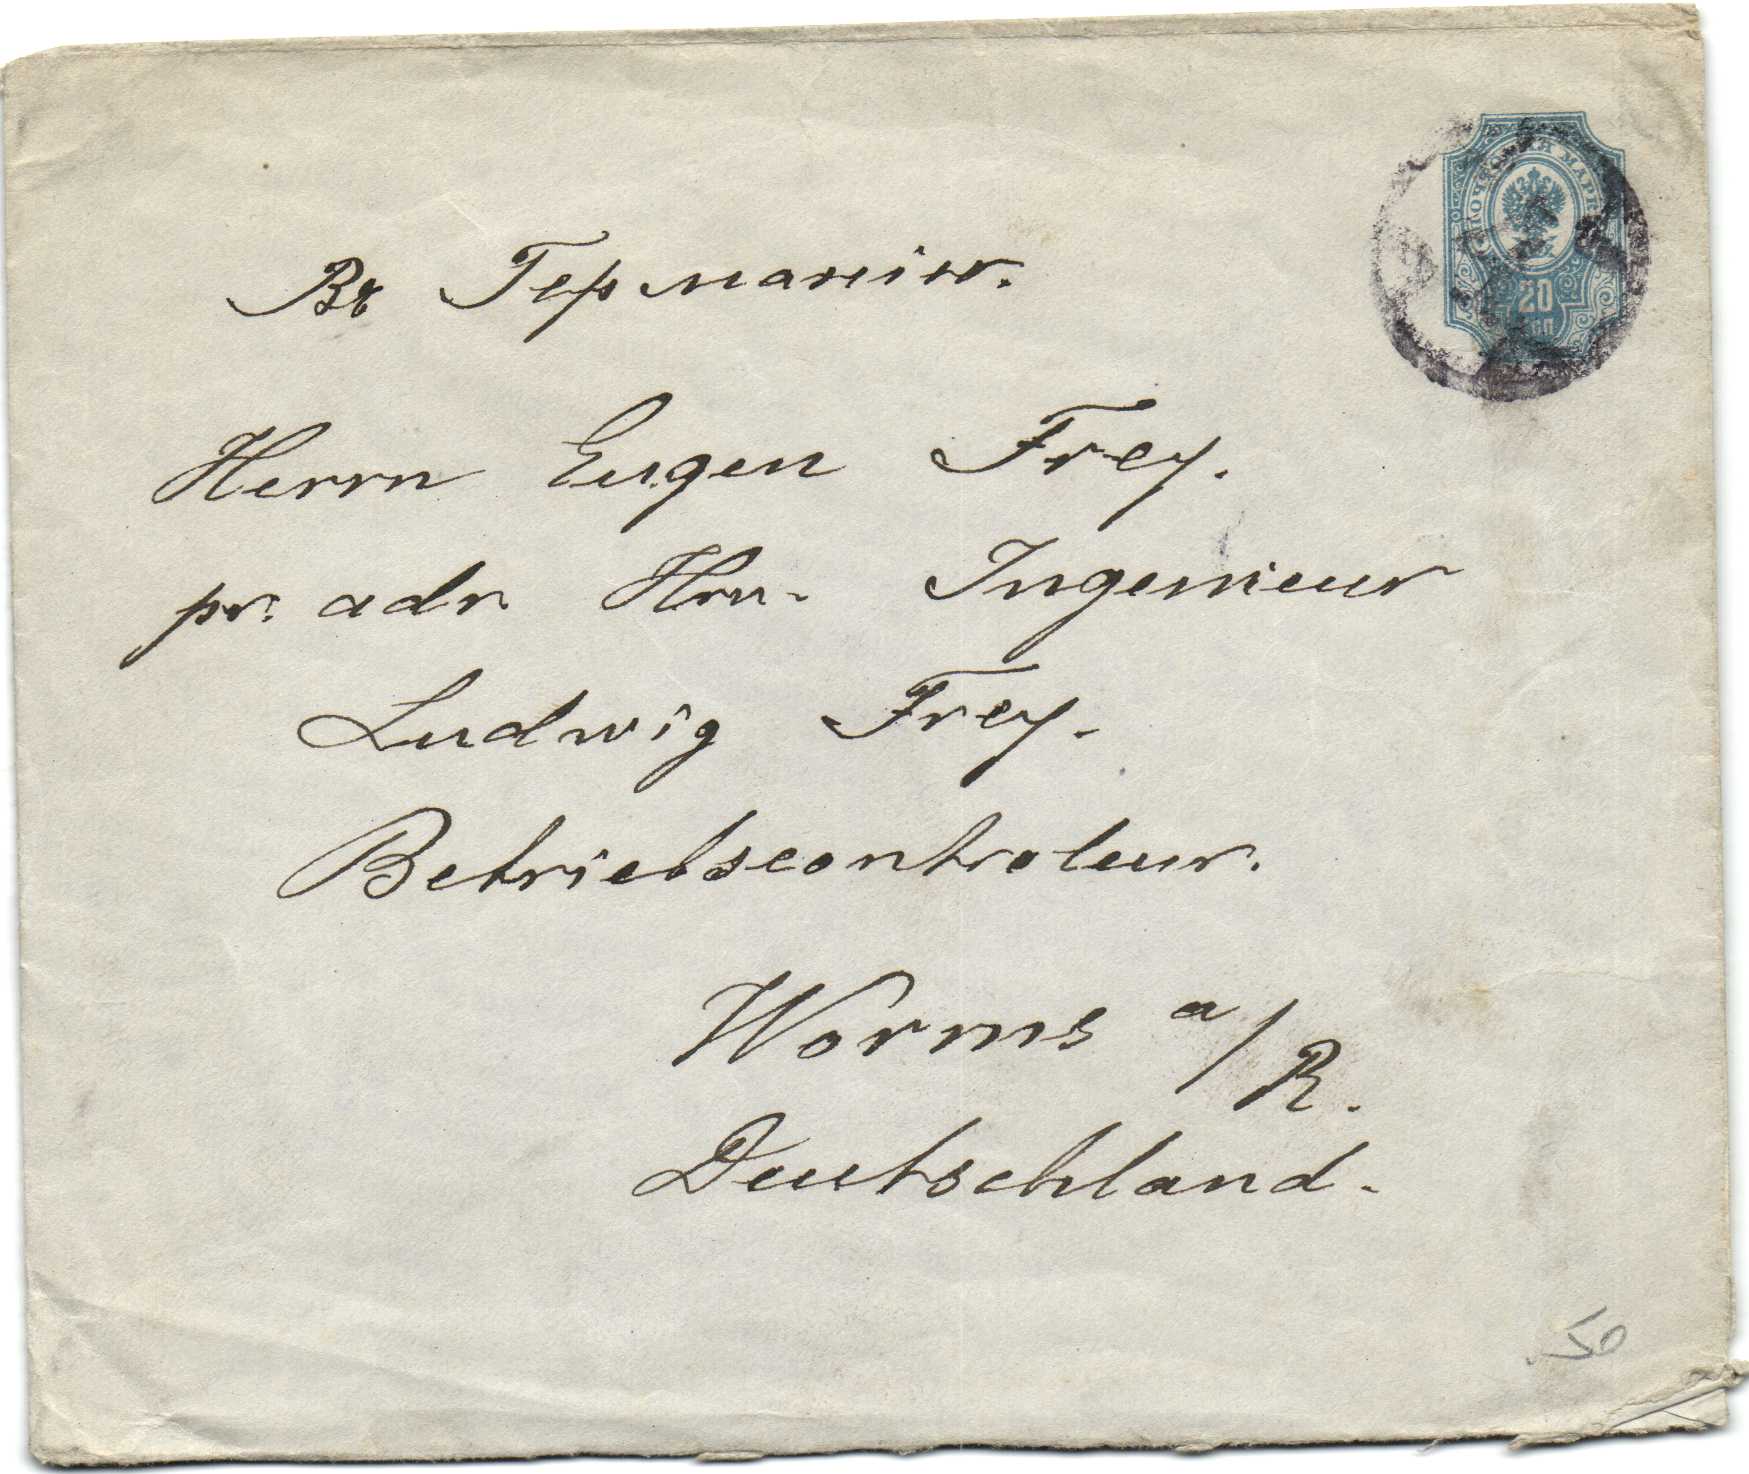 ПОЧТОВАЯ МАРКА
20
коп.
Въ Германію.
Herrn Eugen Frey.
pr. adr. Hrn. Ingenieur
Ludwig Frey.
Betriebscontroleur.
Worms a/R.
Deutschland.
50